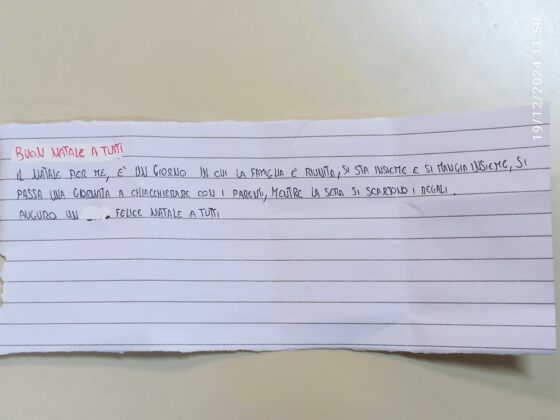 19/12/2024 11:50
BUON NATALE A TUTTI
IL NATALE PER ME, E' UN GIORNO IN CUI LA FAMIGLIA È RIUNITA, SI STA INSIEME E SI MANGIA INSIEME, SI
PASSA UNA GIORNATA A CHIACCHIERARE CON I PARENTI, MENTRE LA SERA SI SCARTONO I REGALI.
AUGURO UN FELICE NATALE A TUTTI